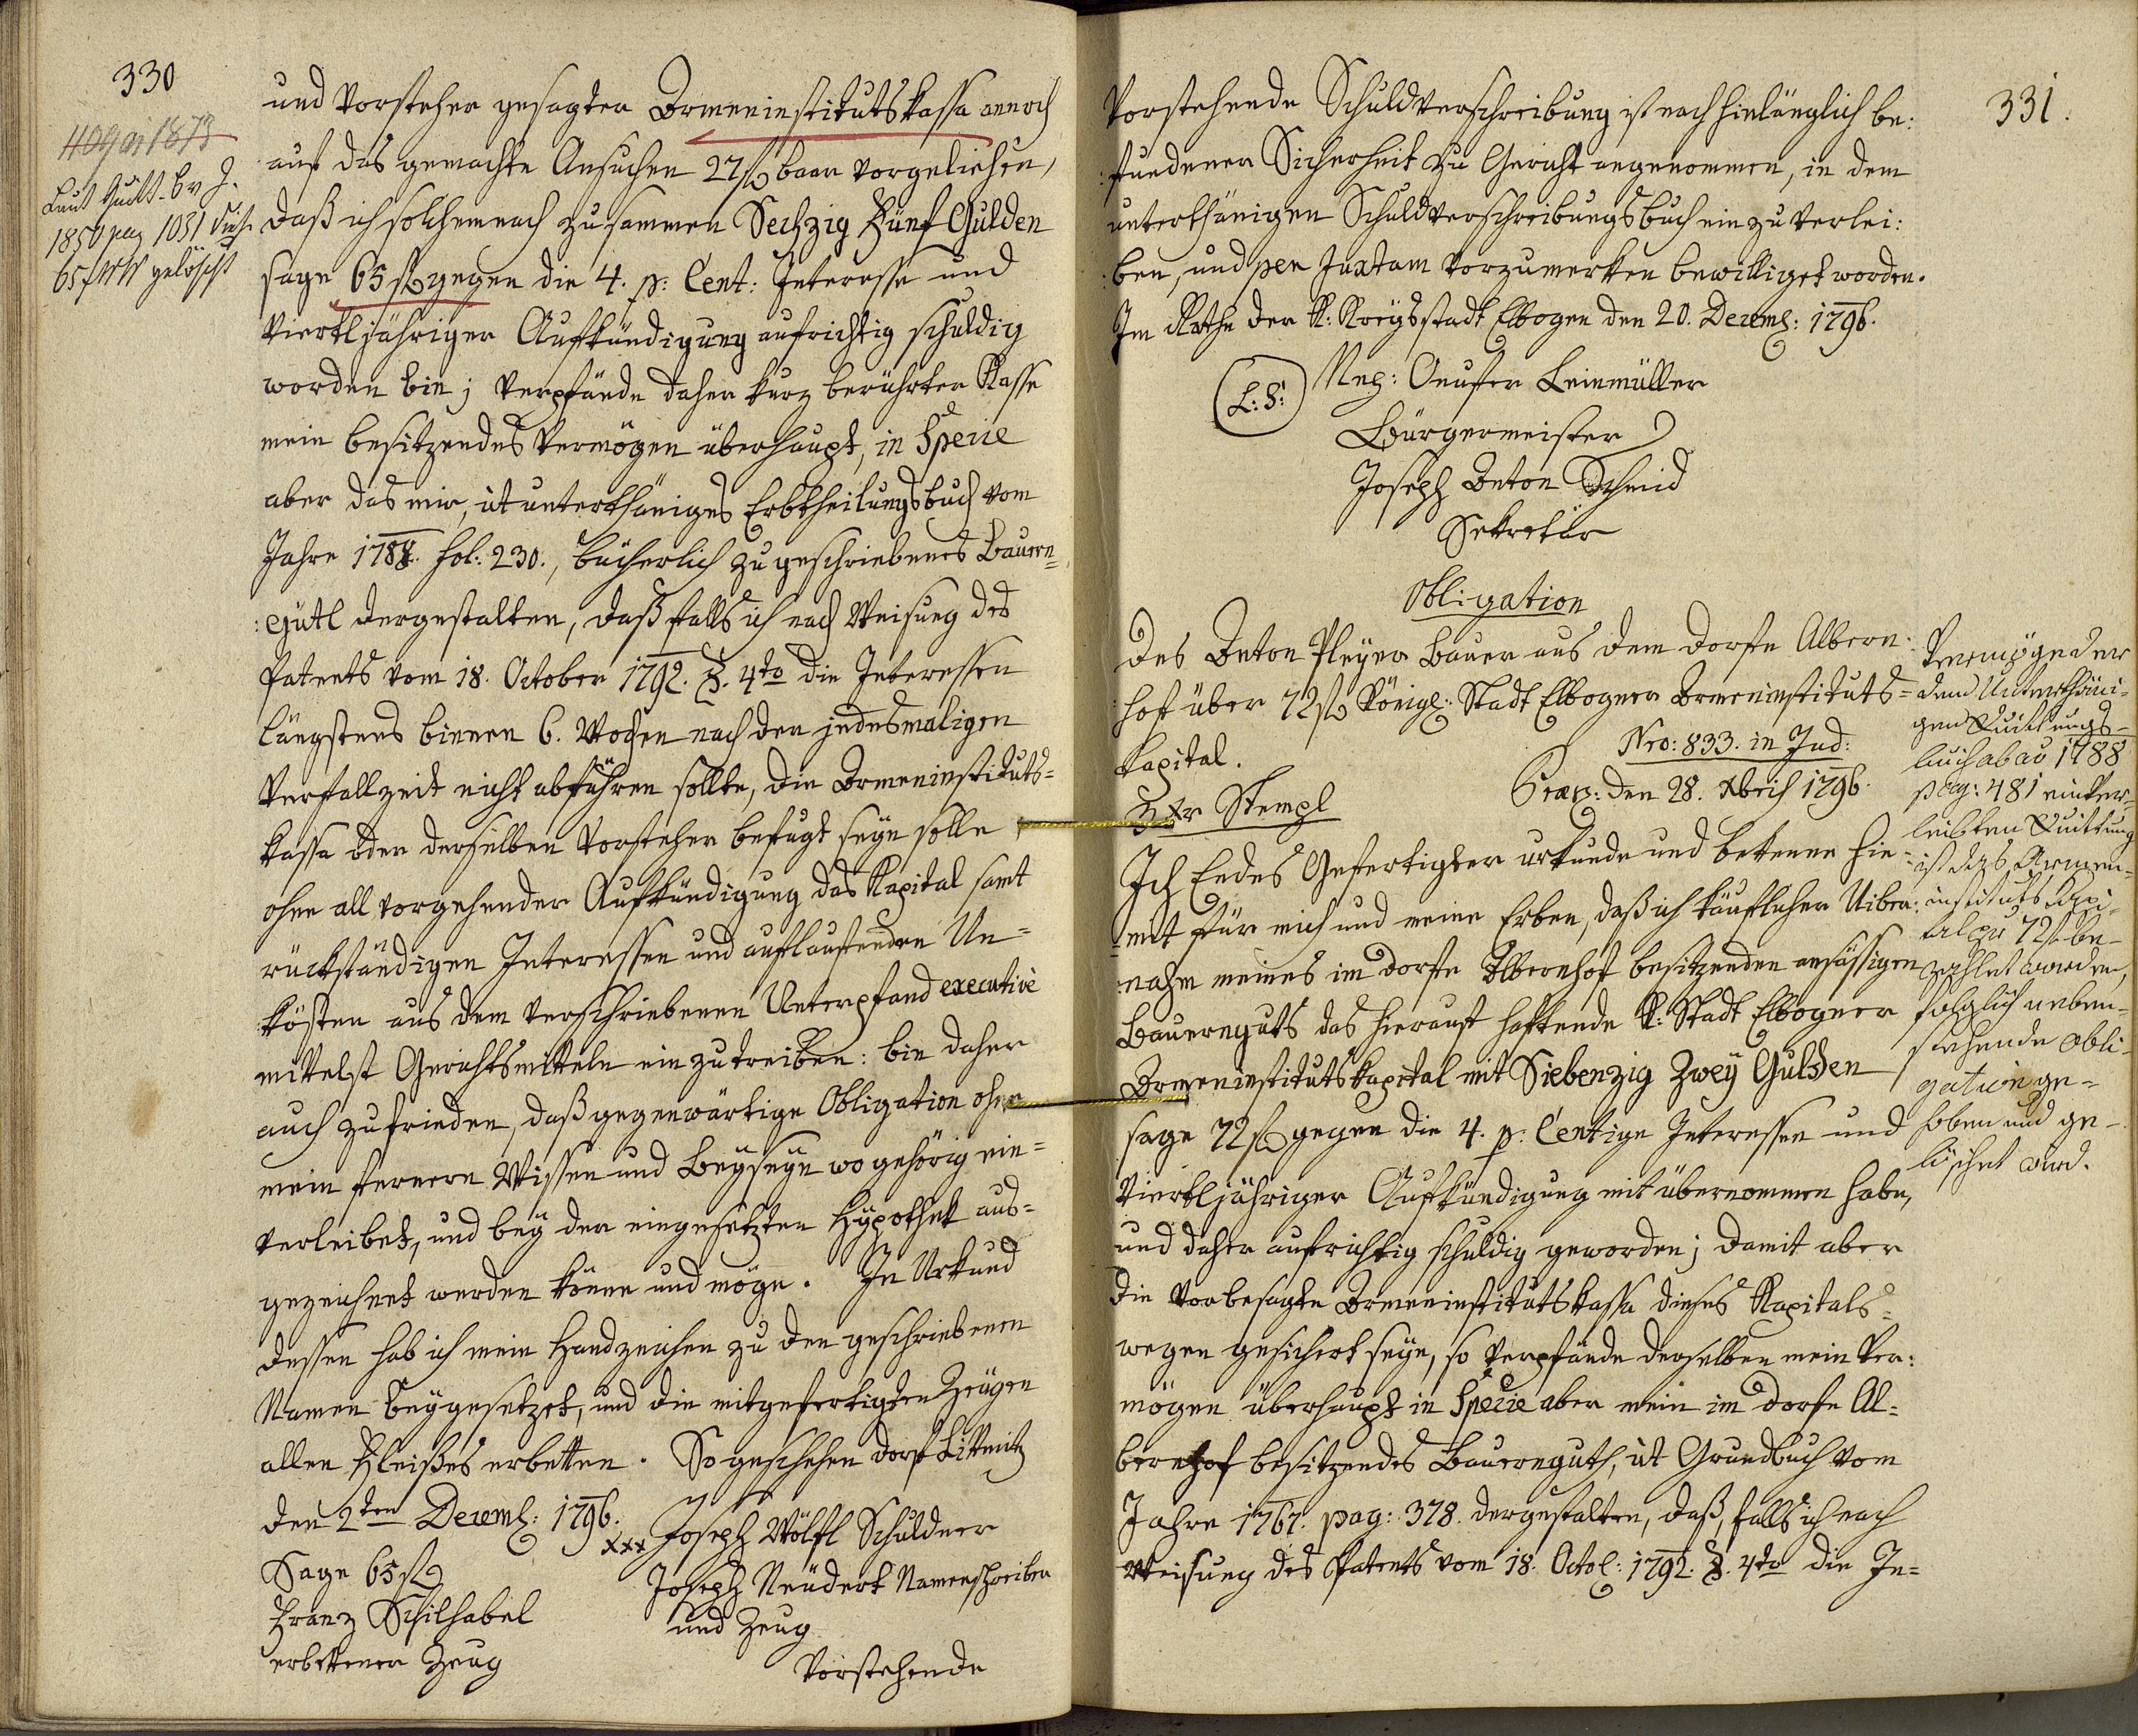 330
Laut Quitt. b. v. J.
1856 pag 1031 diese
65 f WW gelöscht
und Vorsteher gesagter Armeninstitutskassa annoch
auf das gemachte Ansuchen 27 fl baar vorgeliehen,
daß ich solchemnach zusammen Sechzig Fünf Gulden
sage 65 fl gegen die 4. p: Cent: Interesse und
viertljähriger Aufkündigung aufrichtig schuldig
worden bin; verpfände daher kurz berührter Kasse
mein besitzendes Vermögen überhaupt, in Specie
aber das mir, ut unterthäniges Erbtheilungsbuch vom
Jahre 1788. fol: 230., bücherlich zugeschriebenes Bauern=
:gütl dergestalten, daß falls ich nach Weisung des
Patents vom 18. October 1792. §. 4to die Interessen
längstens binnen 6. Wochen nach der jedesmaligen
Verfallzeit nicht abführen sollte, die Armeninstituts=
kassa oder derselben Vorsteher befugt seyn solle
ohne all vorgehender Aufkündigung das Kapital samt
rückständigen Interessen und auflaufenden Un=
kösten aus dem verschriebenen Unterpfand executivè
mittelst Gerichtsmitteln einzutreiben: bin daher
auch zufrieden, daß gegenwärtige Obligation ohne
mein fernern Wissen und Beyseyn wo gehörig ein=
verleibet, und bey der eingesetzten Hÿpothek aus=
gezeichnet werden könne und möge. In Urkund
dessen hab ich mein Handzeichen zu den geschriebenen
Namen beygesetzet, und die mitgefertigten Zeugen
allen Fleißes erbetten. So geschehen Dorf Littmitz
den 2ten Decemb: 1796.
xxx Joseph Wölfl Schuldner
Sage 65 fl
Joseph Neudert Namenschreiber
und Zeug
Franz Schilhabel
erbettener Zeug
Vorstehende
331.
Vorstehende Schuldverschreibung ist nach hinlänglich be:
:fundener Sicherheit zu Gericht angenommen, in dem
unterthänigen Schuldverschreibungsbuch einzuverlei:
:ben, und per Juxtam vorzumerken bewilliget worden.
Im Rathe der K: Kreysstadt Elbogen den 20. Decemb: 1796.
(L: S:)
Bürgermeister
Joseph Anton Schmid
Sekretär
Obligation
Des Anton Pleyer Bauer aus dem Dorfe Albern:
:hof über 72 fl Königl: Stadt Elbogner Armeninstituts=
Kapital.
Nro: 833. in Jud:
Præs: den 28. Xbris 1796.
3 Xr Stempl
Ich Endes Gefertigter urkunde und bekenne hie=
=mit für mich und meine Erben, daß ich käuflicher Uiber:
:nahm meines im Dorfe Albernhof besitzenden ansässigen
Bauernguts das hierauf haftende K: Stadt Elbogner
Armeninstitutskapital mit Siebenzig Zweÿ Gulden
sage 72 fl gegen die 4. p: Centige Interessen und
Viertljähriger Aufkündigung mit übernommen habe,
und daher aufrichtig schuldig geworden; damit aber
die vorbesagte Armeninstitutskassa dieses Kapitals=
wegen gesichert seye, so verpfände derselben mein Ver:
mögen überhaupt in Specie aber mein im Dorfe Al=
bernhof besitzendes Bauernguth, ut Grundbuch vom
Jahre 1767. pag: 378. dergestalten, daß, falls ich nach
Weisung des Patents vom 18. Octob: 1792. §. 4to die In=
Vermöge der
dem Unterthäni-
gen Quittungs-
buch ab ao 1788
pag: 481 einver-
leibten Quittung
ist das Armen-
instituts Kapi-
tal zu 72 fl be-
zahlet worden,
folglich neben-
stehende Obli-
gation ge-
hoben und ge-
löschet wird.